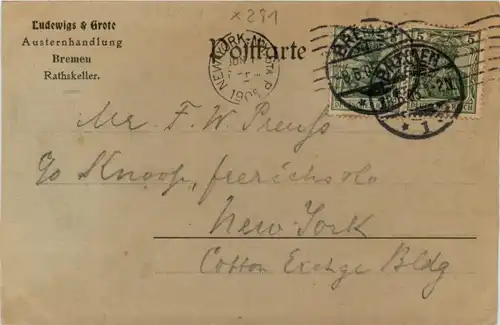 x 281
Ludewigs & Grote
Austernhandlung
Bremen
Rathskeller.
Postkarte
NEW YORK, N.Y.
STA. P
BREMEN
* 1
5 5
Mr. F. W. Preuss
c/o Knoop, Frerichs & Co
New-York
Cotton Exchge Bldg